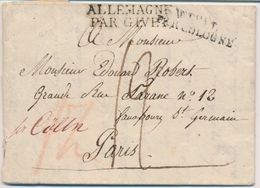 ALLEMAGNE
PAR GIVET
COLOGNE
A Monsieur
Monsieur Edouard Robert
Grande Rue Taranne nº 12
fauxbourg St Germain
pr Cölln
Paris.